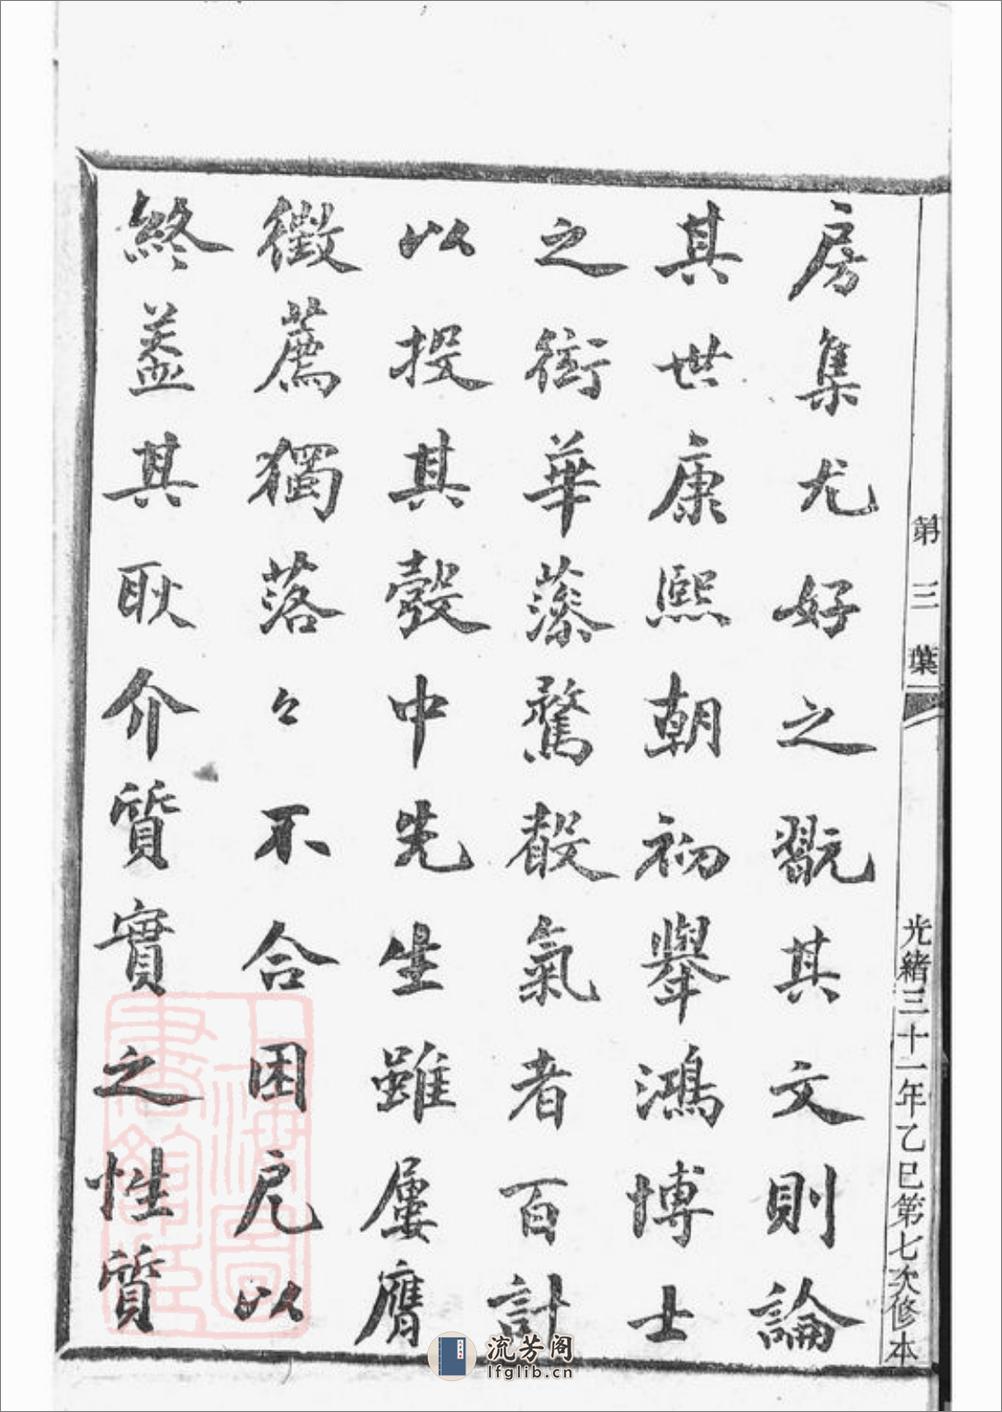 第三葉
光緒三十一年乙巳第七次修本
房集尤好之翫其文則論
其世康熙朝初舉鴻博士
之衒華藻驁聲氣者百計
以投其彀中先生雖屢膺
徵薦獨落々不合困戹以
終葢其耿介質實之性質
上海圖書館藏
流芳阁
lfglib.cn